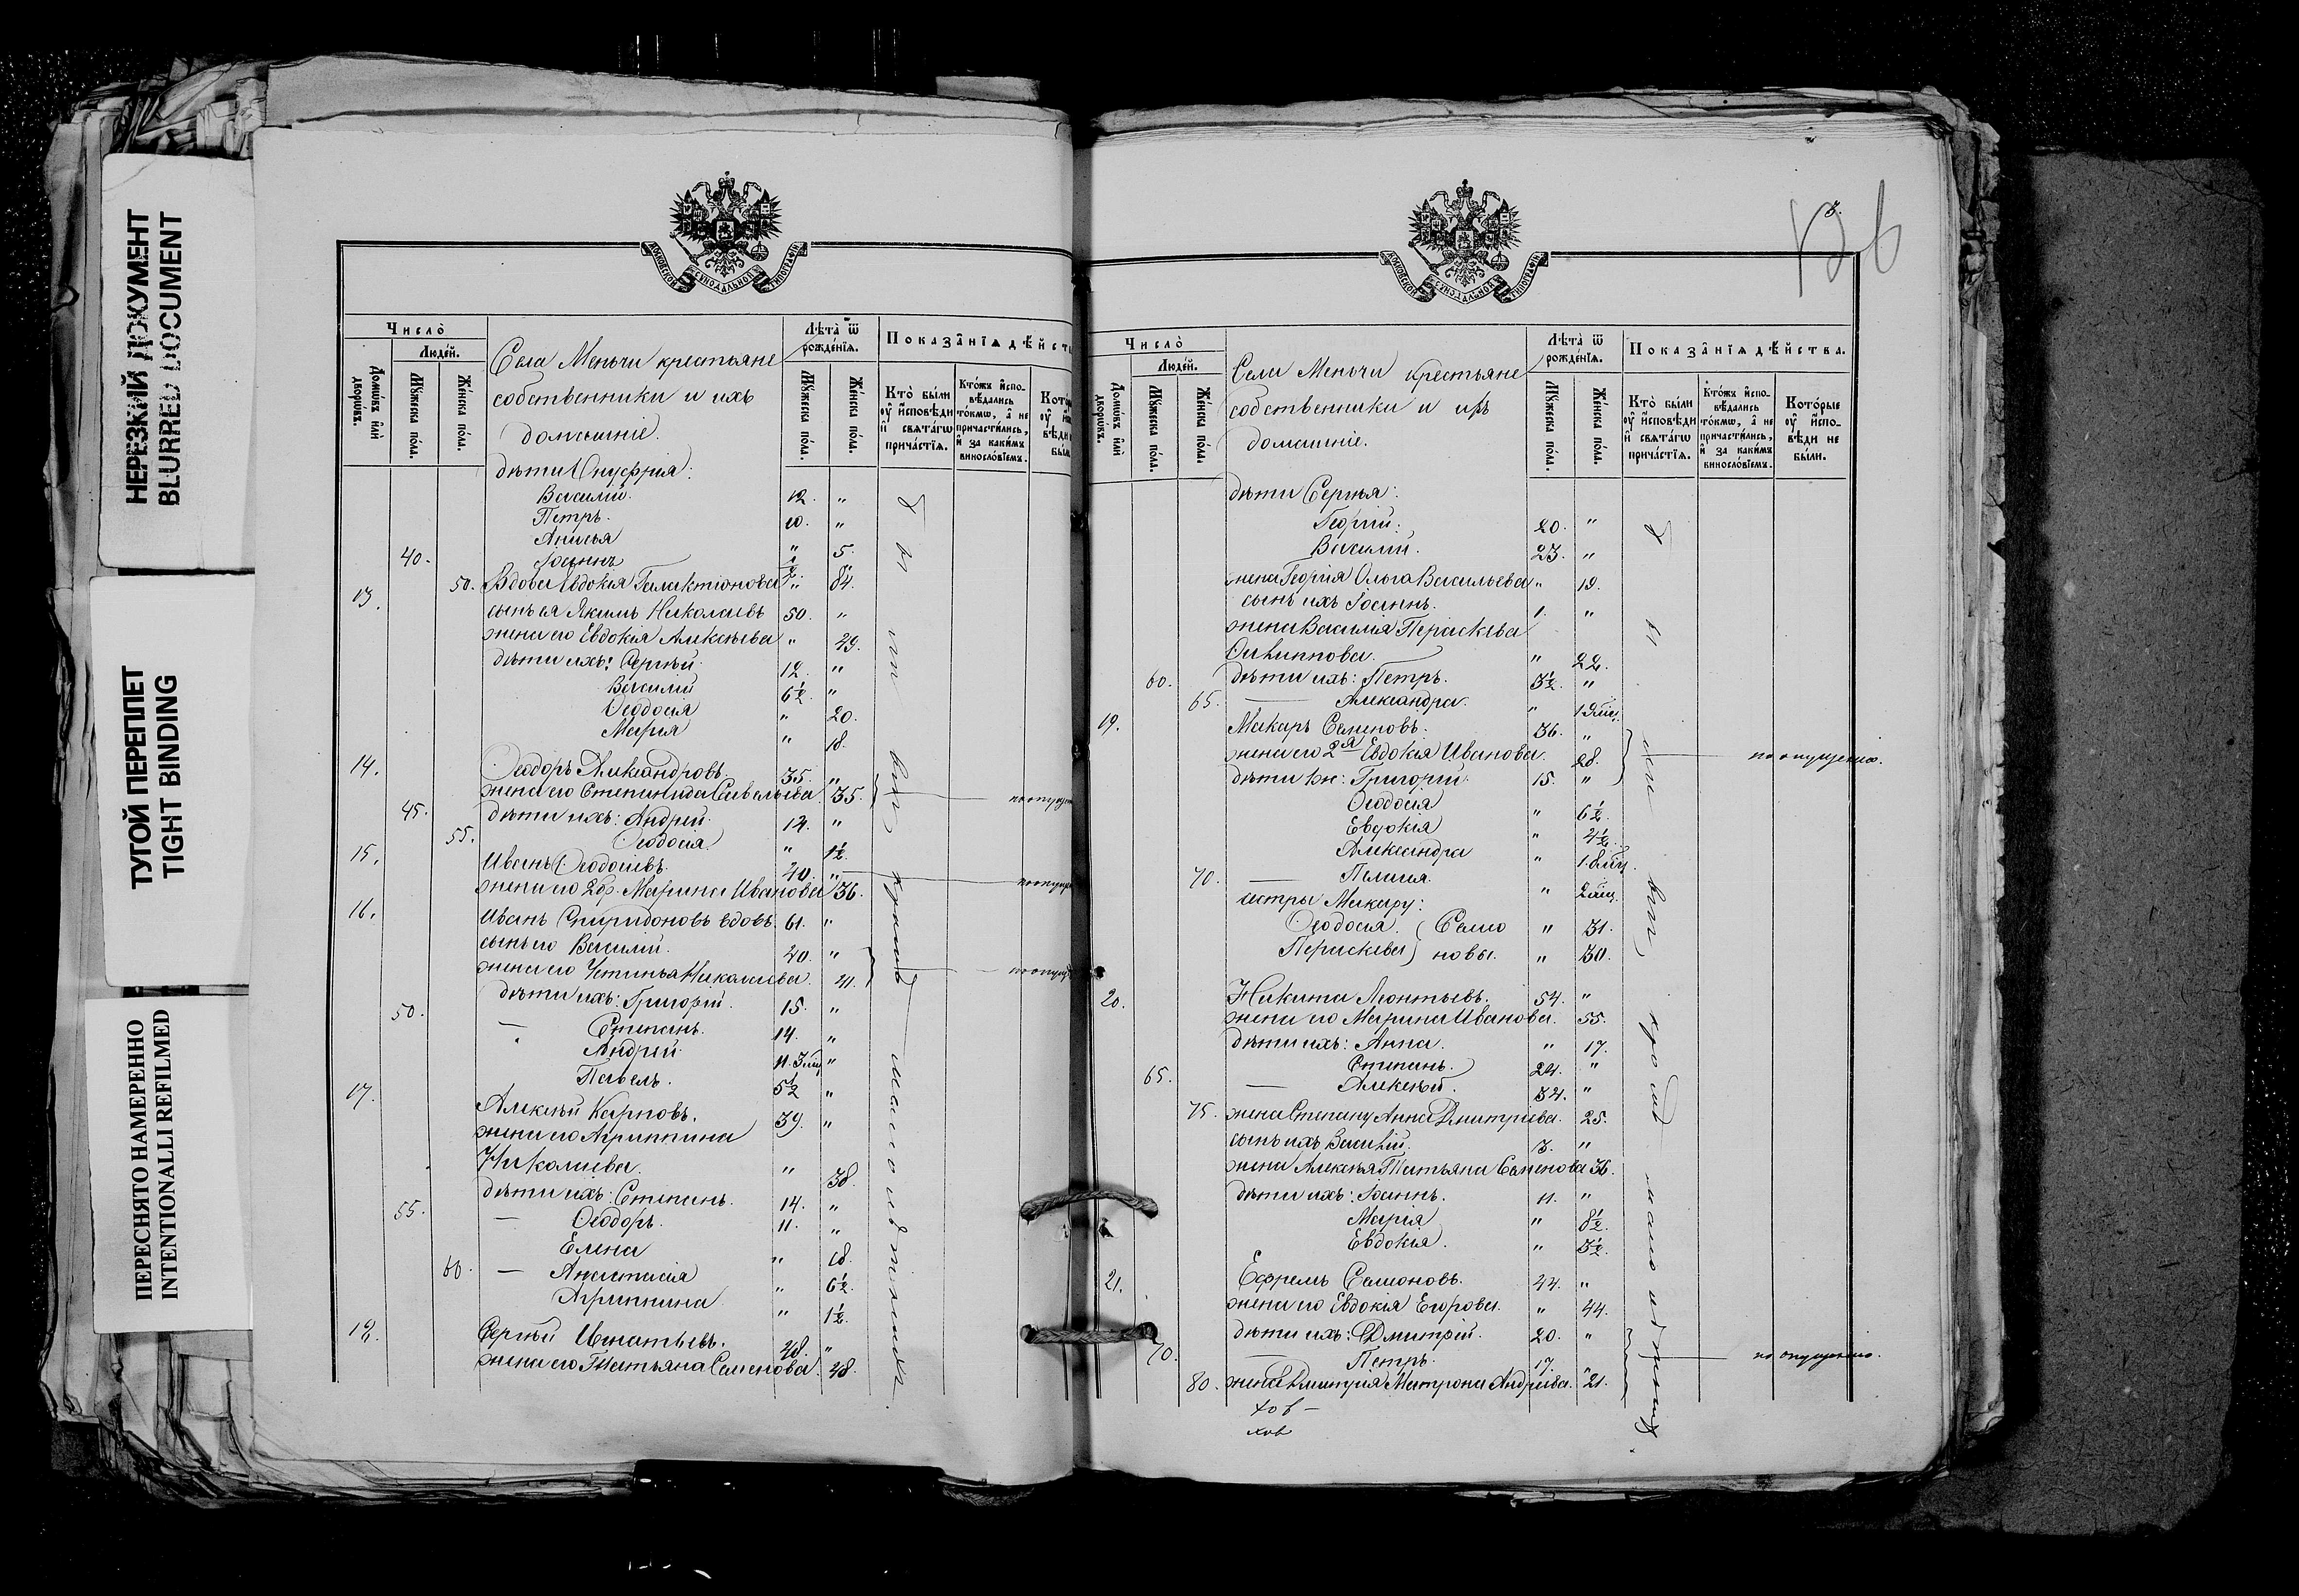 НЕРЕЗКИЙ ДОКУМЕНТ
BLURRED DOCUMENT
ТУГОЙ ПЕРЕПЛЕТ
TIGHT BINDING
ПЕРЕСНЯТО НАМЕРЕННО
INTENTIONALLI REFILMED
Число
Людей.
Домѡвъ или дворѡвъ.
Мужеска пола.
Женска пола.
Села Меньчи крестьяне
собственники и ихъ
домашніе.
Лѣта ѿ рожденія.
Мужеска пола.
Женска пола.
Показанія дѣйст
Кто были
оу исповѣди
и свѧтагѡ
причастія.
Ктожъ испо-
вѣдались
токмѡ, а не
причастились,
и за какимъ
винословіемъ.
дѣти Онуфрія:
Василій. 12. "
Петръ. 10. "
Анисья " 5.
40. Іоаннъ
13. 50. Вдова Евдокія Галактіонова " 84.
сынъ ея Якимъ Николаевъ 50. "
жена его Евдокія Алексѣева " 49.
дѣти ихъ: Сергѣй. 12. "
Василій 6½. "
Ѳеодосія " 20.
Марія " 18.
14. Ѳеодоръ Александровъ. 35. "
жена его Степанида Савельева 35.
45. дѣти ихъ: Андрей. 14. "
55. Ѳеодосія. " 1½.
15. Иванъ Ѳеодосіевъ. 40. "
жена его 2бр. Марина Иванова 36.
16. Иванъ Спиридоновъ вдовъ. 61. "
сынъ его Василій. 40. "
жена его Устинья Николаева. 41.
50. дѣти ихъ: Григорій. 15. "
Степанъ. 14. "
Андрей. 11. "
Павелъ. 5½ "
17. Алексѣй Карповъ. 39. "
жена его Агриппина
Николаева. " 38.
дѣти ихъ: Степанъ. 14. "
55. Ѳеодоръ. 11. "
Елена " 18.
60. Анастасія " 6½.
Агриппина " 1½.
18. Сергѣй Игнатьевъ. 48. "
жена его Татьяна Семенова. 48.
Число
Людей.
Домѡвъ или дворѡвъ.
Мужеска пола.
Женска пола.
Села Меньчи крестьяне
собственники и ихъ
домашніе.
Лѣта ѿ рожденія.
Мужеска пола.
Женска пола.
Показанія дѣйства.
Кто были
оу исповѣди
и свѧтагѡ
причастія.
Ктожъ испо-
вѣдались
токмѡ, а не
причастились,
и за какимъ
винословіемъ.
Которые
оу испо-
вѣди не
были.
дѣти Сергѣя:
Георгій. 20. "
Василій. 23. "
жена Георгія Ольга Васильева " 19.
сынъ ихъ Іоаннъ. 1. "
жена Василія Параскева
Филиппова. " 22.
60. дѣти ихъ: Петръ. 3½. "
65. Александра. "
19. Макаръ Семеновъ. 36. "
жена его 2я Евдокія Иванова. 28. по опущенію.
дѣти ихъ: Григорій. 15. "
Ѳеодосія " 6½.
Евдокія " 4½.
Александра "
70. Пелагія. "
сестры Макару:
Ѳеодосія. (Семе " 31.
Параскева) новы. " 30.
20. Никита Леонтьевъ. 54. "
жена его Марина Иванова. 55.
дѣти ихъ: Анна. " 17.
65. Степанъ. 24. "
Алексѣй. 34. "
75. жена Степану Анна Дмитріева. 25.
сынъ ихъ Василій. 3. "
жена Алексѣя Татьяна Семенова 36.
дѣти ихъ: Іоаннъ. 11. "
Марія " 8½.
Евдокія. " 3½.
21. Ефремъ Семоновъ. 44. "
жена его Евдокія Егорова. " 44.
дѣти ихъ: Дмитрій. 20. "
70. Петръ. 17. " по опущенію.
80. жена Дмитрія Матрона Андреева. 21.